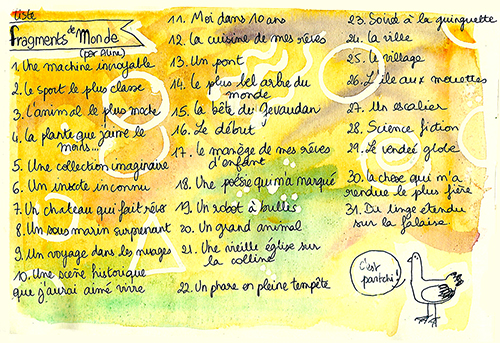 Liste
Fragments de Monde
(par Aline)
1. Une machine incroyable
2. Le sport le plus classe
3. L'animal le plus moche
4. La plante que j'aime le
moins...
5. Une collection imaginaire
6. Un insecte inconnu
7. Un chateau qui fait rêver
8. Un sous marin surprenant
9. Un voyage dans les nuages
10. Une scène historique
que j'aurai aimé vivre
11. Moi dans 10 ans
12. La cuisine de mes rêves
13. Un pont
14. Le plus bel arbre du
monde
15. La bête du Jevaudan
16. Le début
17. le manège de mes rêves
d'enfant
18. Une poésie qui m'a marqué
19. Un robot à bulles
20. Un grand animal
21. Une vieille église sur
la colline
22. Un phare en pleine tempête
23. Soirée à la guinguette
24. La ville
25. Le village
26. L'île aux mouettes
27. Un escalier
28. Science fiction
29. Le vendée globe
30. la chose qui m'a
rendue le plus fière
31. Du linge étendu
sur la falaise
C'est
partchi!